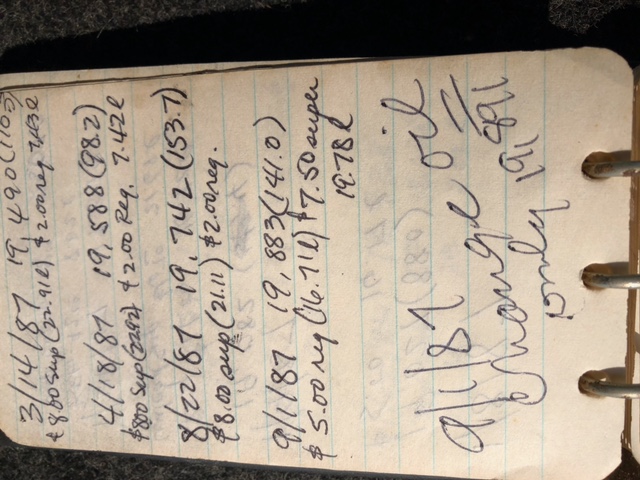 3/14/87 19,490 (110.5)
$8.00 sup (22.91l) $2.00 reg 7.43l
4/18/87 19,588 (98.2)
$8.00 sup $2.00 Reg. 7.42l
8/22/87 19,742 (153.7)
$8.00 sup (21.11) $2.00 reg.
9/1/87 19,883 (141.0)
$5.00 reg (16.71l) $7.50 super
19.78l
9/1/87 oil
Change
only 19,891